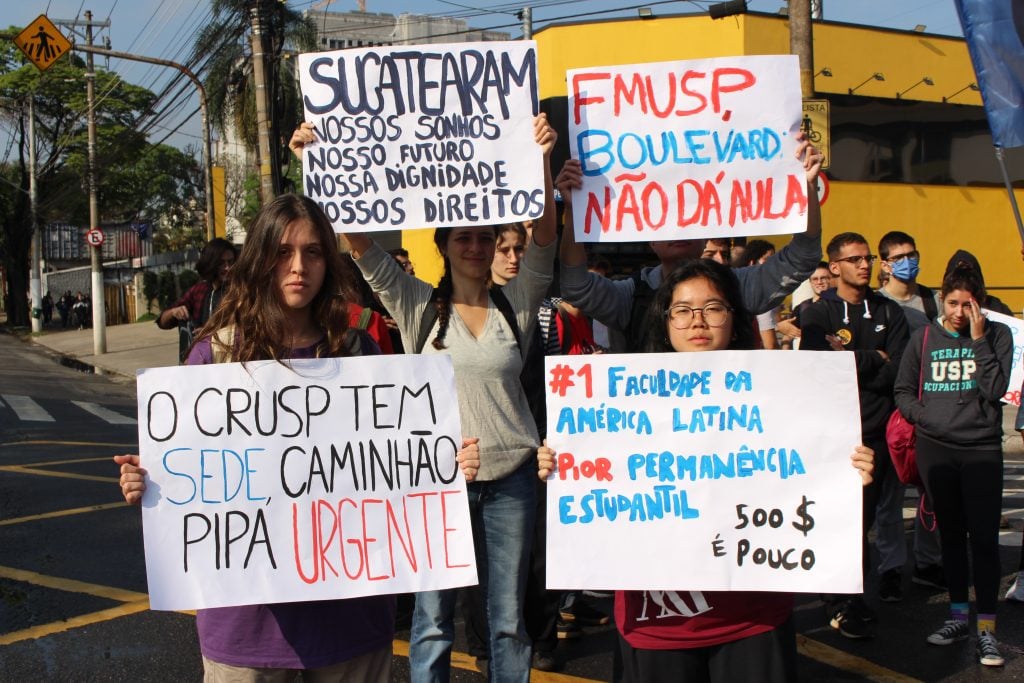 SUCATEARAM
NOSSOS SONHOS
NOSSO FUTURO
NOSSA DIGNIDADE
NOSSOS DIREITOS
FMUSP,
BOULEVARD
NÃO DÁ AULA
O CRUSP TEM
SEDE, CAMINHÃO
PIPA, URGENTE
#1 FACULDADE DA
AMÉRICA LATINA
PIOR PERMANÊNCIA
ESTUDANTIL
500 $
É POUCO
TERAPIA
USP
OCUPACIONAL